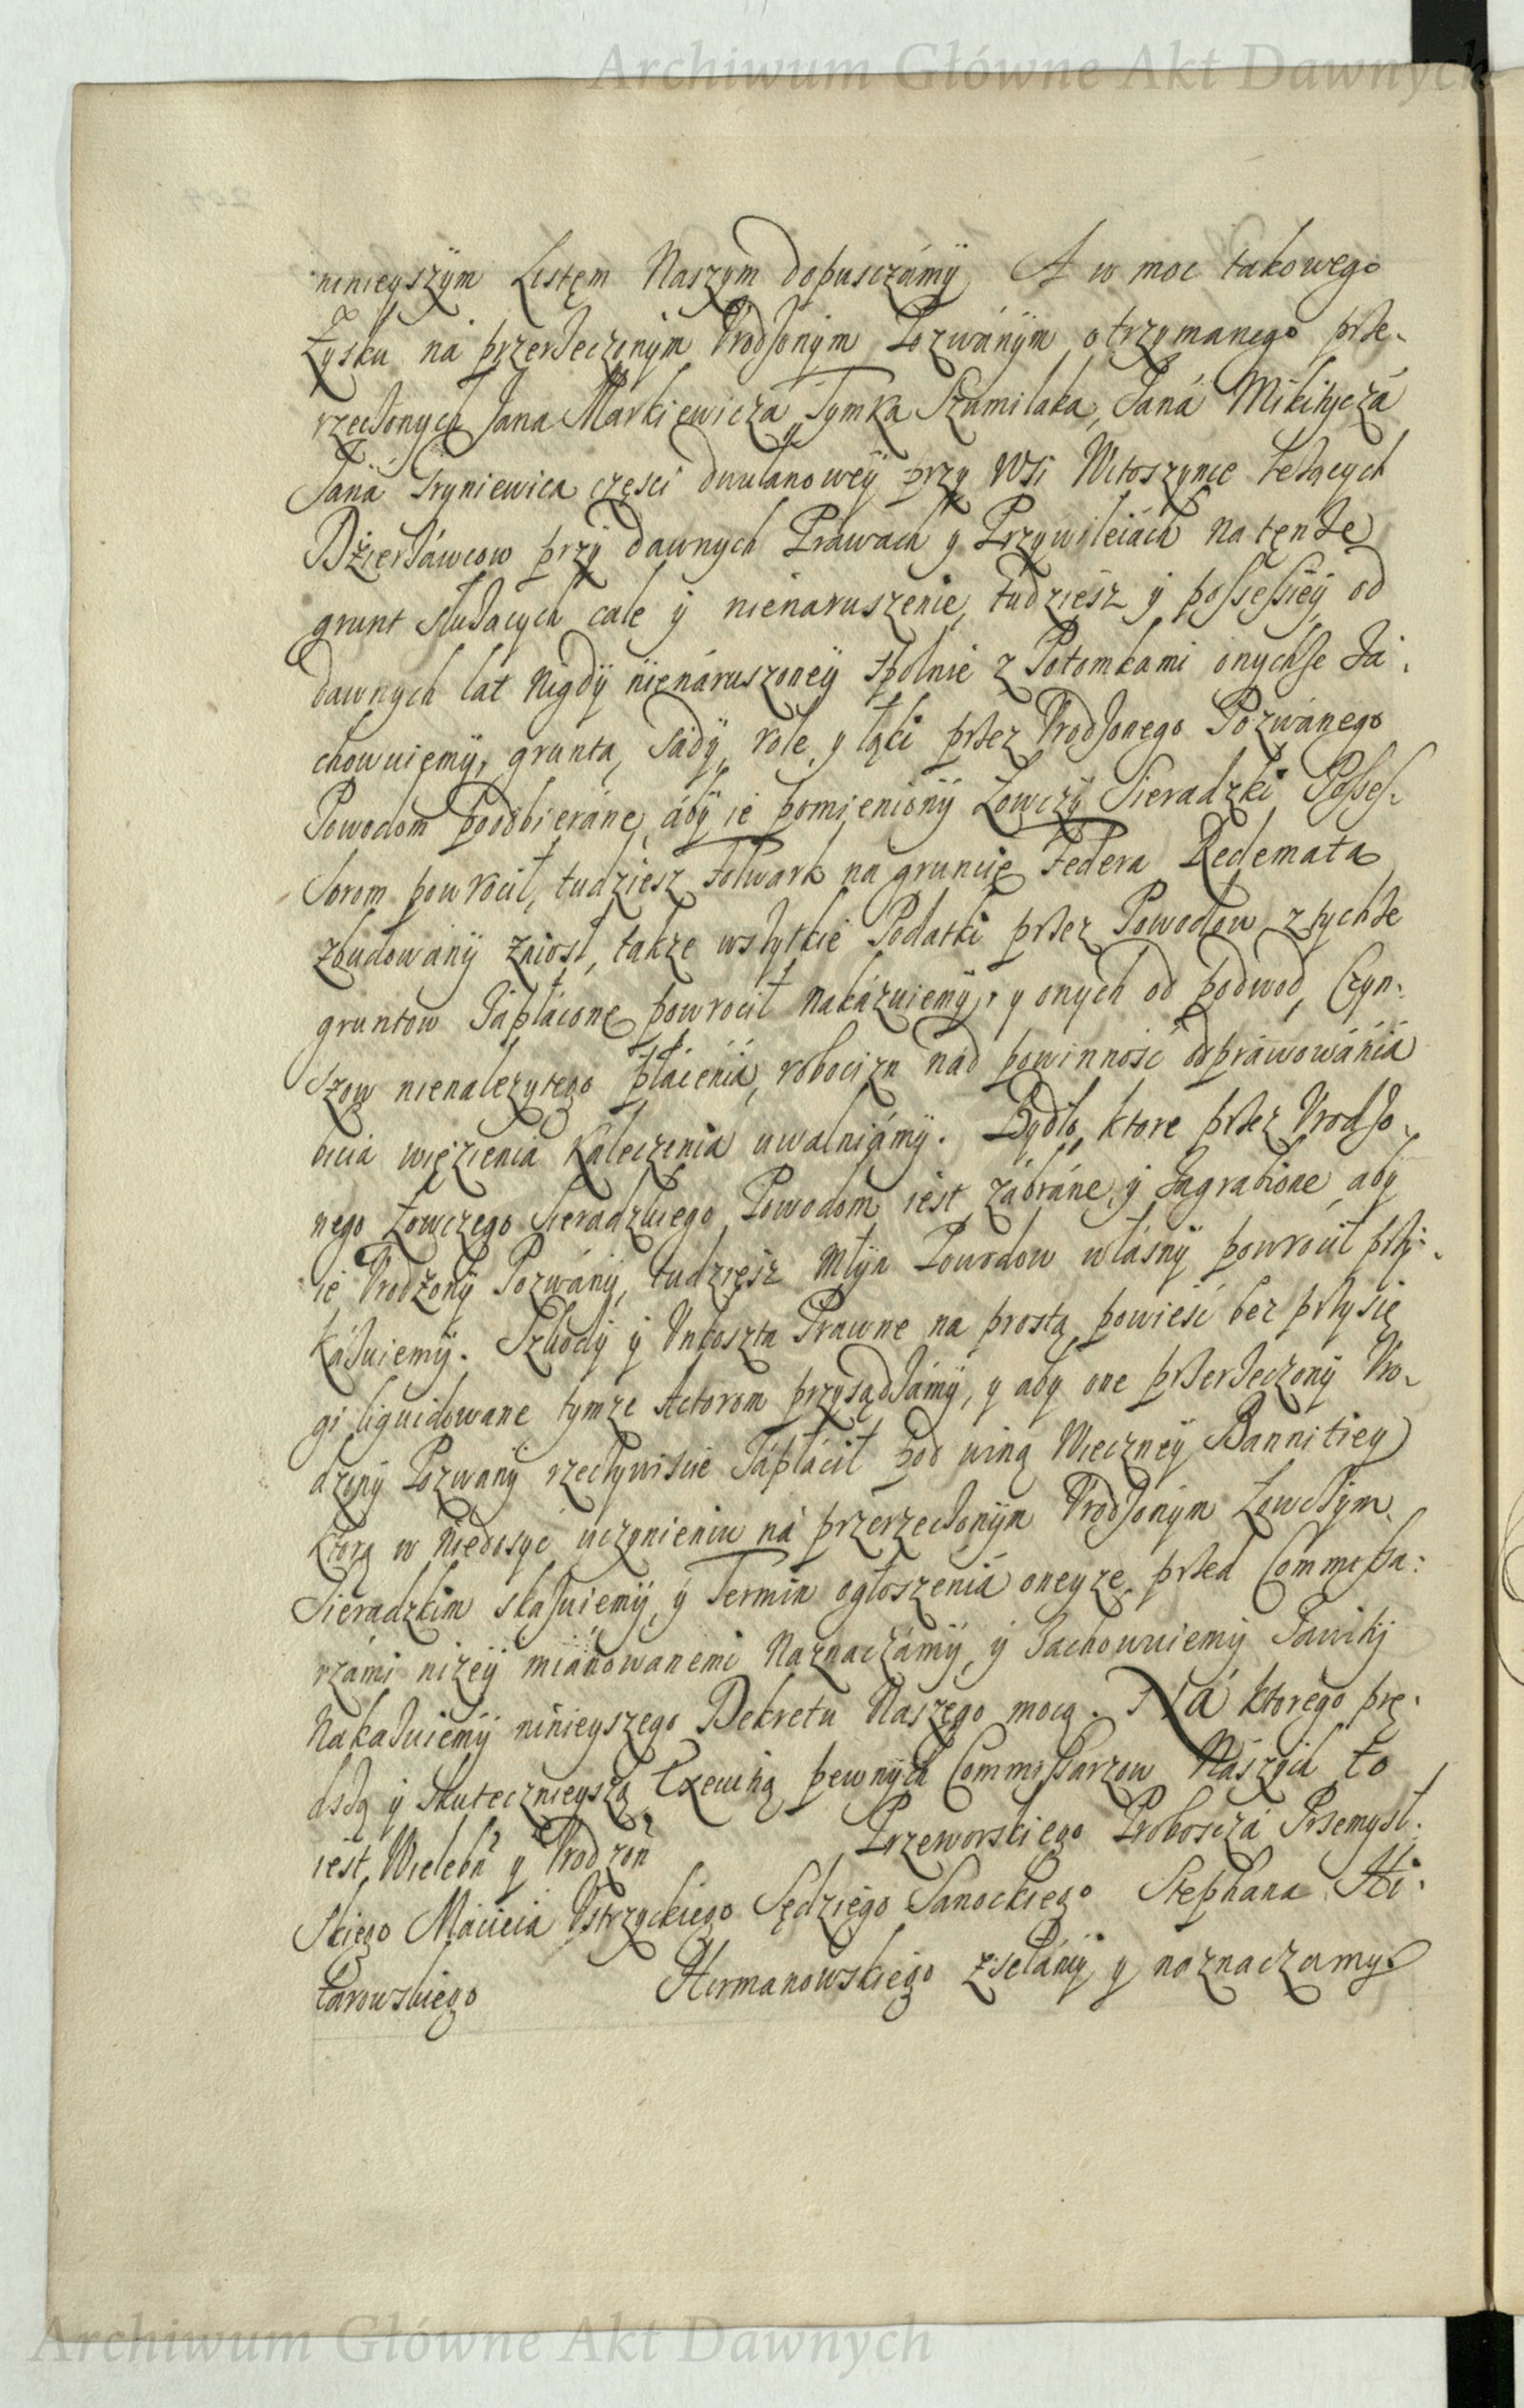 Archiwum Główne Akt Dawnych
ninieyszym Listem Naszym dopusczamÿ A w moc takowego
Zysku na przerzeczonym Vrodzonym Pozwanÿm otrzymanego prze-
rzeczonych Jana Markiewicza, Tymka Szamilaka, Jana Mikityczá
Jana Hryniewica części dwulanowey przy Wsi Witoszynce leżących
Dzierżáwcow przÿ dawnych Prawach y Przywileiách na tenże
grunt służących cale ÿ nienaruszenie, tudziesz ÿ possessiey od
dawnych lat nigdÿ nienáruszoneÿ spolnie z Potomkami onychże za-
chowuiemÿ, grunta, sadÿ, role, y łąki przez Vrodzonego Pozwánego
Powodom poodbieráne, ábÿ ie pomienionÿ Łowczÿ Sieradzki Posses-
sorom powrocił, tudziesz Folwark na gruncie Federa Dedemata
zbudowanÿ zniosł, także wszytkie Podatki przez Powodow z tychże
gruntow zápłácone powrocił nakázuiemÿ, y onych od podwod, Czyn-
szow nienależytego płácenia, robocizn nád powinność odpráwowánia
bicia więzienia kaleczenia uwalniámÿ. Bydło, ktore przez Vrodzo-
nego Łowczego Sieradzkiego Powodom iest zábráne, ÿ zagrabione abÿ
ie Vrodzonÿ Pozwánÿ, tudziesz Młyn Powodow własnÿ powrocił przÿ-
kázuiemÿ. Szkodÿ ÿ Vnkoszta Prawne na prostą powieść bez przysię
gi liquidowane tymże Actorom przysądzámÿ, y aby one przerzeczonÿ Vro-
dzonÿ Pozwanÿ rzeczywiście zápłácił pod winą Wieczneÿ Bannitiey
ktorą w niedosyć uczynieniu ná przerzeczonym Vrodzonym Łowczym
Sieradzkim skazuiemÿ, ÿ Termin ogłoszenia oneyże przed Commissa-
rzámi niżeÿ miánowanemi naznaczámÿ, ÿ zachowuiemy Zawitÿ
nakazuiemÿ ninieyszego Dekretu Naszego mocą. Ná ktorego prę-
dszą ÿ skutecznieyszą Exekucÿą pewnÿch Commissarzow Nászÿch to
iest, Wielebn y Vrodzon Przeworskiego Proboszczá Przemysl-
skiego Macieiá Vstrzyckiego Sędziego Sanockiego Stephana
tarowskiego Hermanowskiego zsełámÿ y naznaczamy.
Archiwum Główne Akt Dawnych